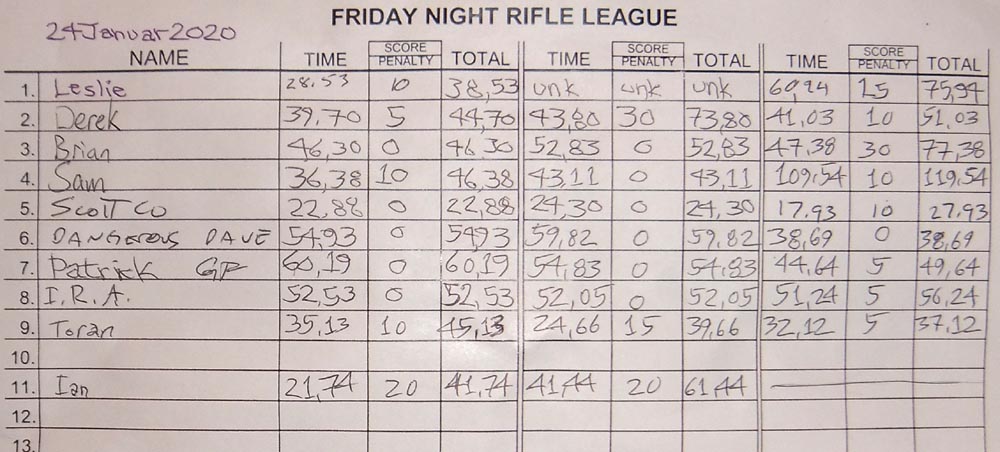 FRIDAY NIGHT RIFLE LEAGUE
24Januar2020
NAME TIME SCORE PENALTY TOTAL TIME SCORE PENALTY TOTAL TIME SCORE PENALTY TOTAL
1. Leslie 28.53 10 38,53 unk unk unk 60,94 15 75,94
2. Derek 39,70 5 44,70 43,80 30 73,80 41,03 10 51,03
3. Brian 46,30 0 46 30 52,83 0 52,83 47,38 30 77,38
4. Sam 36,38 10 46,38 43,11 0 43,11 109,54 10 119,54
5. ScoTT Co 22,88 0 22,88 24,30 0 24,30 17,93 10 27,93
6. DANGEROUS DAVE 54,93 0 5493 59,82 0 59,82 38,69 0 38,69
7. Patrick GP 60,19 0 60,19 54,83 0 54,83 44,64 5 49,64
8. I.R.A. 52,53 0 52,53 52,05 0 52,05 51,24 5 56,24
9. Toran 35,13 10 45,13 24,66 15 39,66 32,12 5 37,12
10.
11. Ian 21,74 20 41,74 41,44 20 61,44
12.
13.